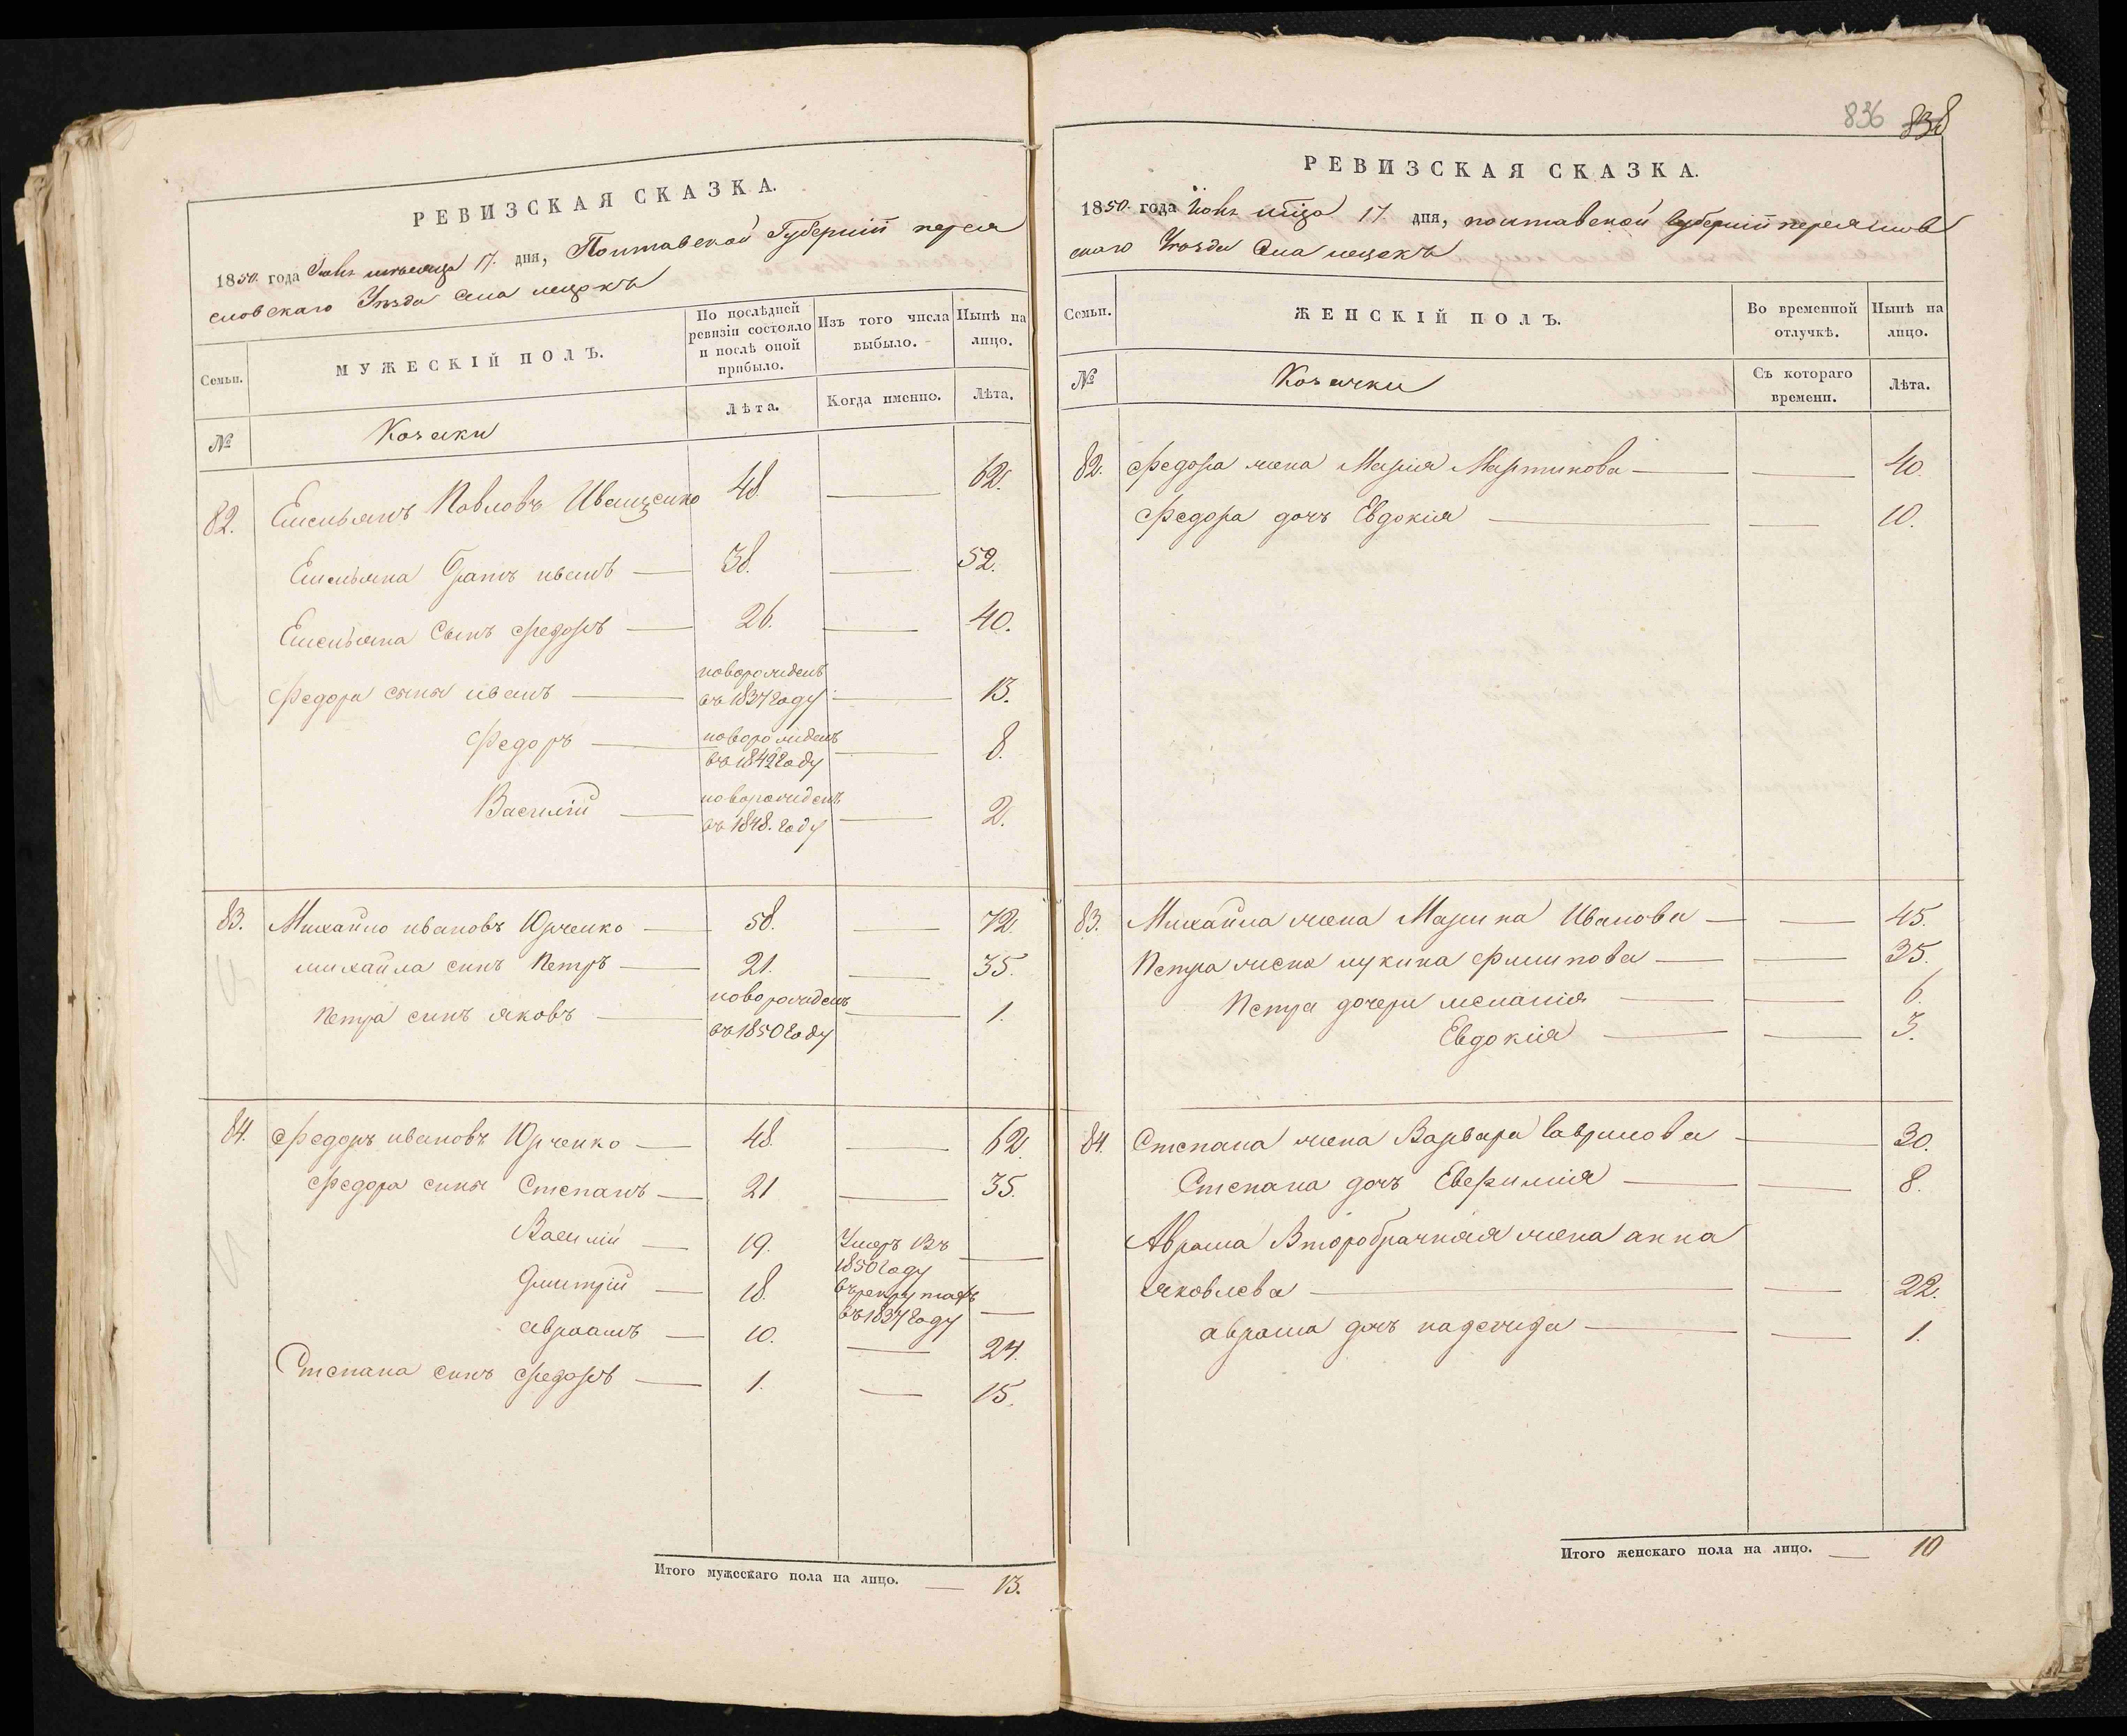 РЕВИЗСКАЯ СКАЗКА.
1850 года Июня месяца 17. дня, Полтавской Губерніи перея
словскаго Уезда Села
Семьи.
МУЖЕСКІЙ ПОЛЪ.
По послѣдней ревизіи состояло и послѣ оной прибыло.
Изъ того числа выбыло.
Нынѣ на лицо.
Лѣта.
Когда именно.
Лѣта.
№
Козаки
82. Емельянъ Павловъ Иващенко 48. 62.
Емельяна братъ иванъ 38. 52.
Емельяна Сынъ федоръ 26. 40.
Федора сыны иванъ новорожденъ въ 1837 году 13.
Федоръ новорожденъ въ 1842 году 8.
Василій новорожденъ въ 1848. году 2.
83. Михайло ивановъ Юрченко 58. 72.
михайла синъ Петръ 21. 35.
Петра синъ яковъ новорожденъ въ 1850 году 1.
84. Федоръ ивановъ Юрченко 48. 62.
Федора сины Степанъ 21 35.
Василій 19. Умеръ Въ 1850 году
Дмитрій 18. въ рекрутахъ въ 1837 году
авраамъ 10. 24.
Степана синъ федоръ 1. 15.
Итого мужескаго пола на лицо. 13.
836 838
РЕВИЗСКАЯ СКАЗКА.
1850 года Июня мца 17 дня, полтавской Губерніи переяслов
скаго Уезда Села
Семьи.
ЖЕНСКІЙ ПОЛЪ.
Во временной отлучкѣ.
Нынѣ на лицо.
№
Козачки
Съ котораго времени.
Лѣта.
82. Федора жена Марія Мартинова 40.
Федора дочъ Евдокія 10.
83. Михайла жена Марина Иванова 45.
Петра жена лукина Филипова 35.
Петра дочери меланія 6.
Евдокія 3.
84. Степана жена Варвара Гаврилова 30.
Степана дочъ Евфимія 8.
Аврама Второбрачная жена анна
яковлева 22.
аврама дочъ надежда 1.
Итого женскаго пола на лицо. 10